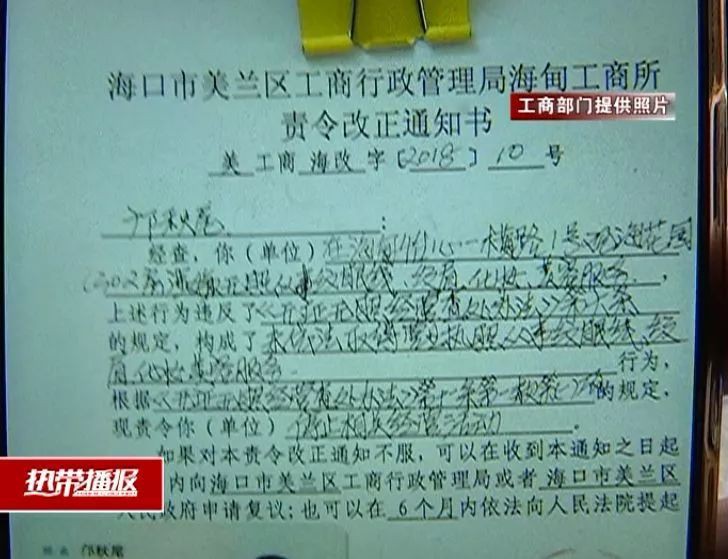 海口市美兰区工商行政管理局海甸工商所
工商部门提供照片
责令改正通知书
美 工商 海改 字〔2018〕10 号
邝秋尾 :
经查，你（单位）在海甸 一横路1号 花园
房 无照 纹眼线、纹眉、化妆、美容服务 ，
上述行为违反了《无证无照经营查处办法》第六条
的规定，构成了 未依法取得营业执照 从事纹眼线、纹
眉、化妆美容服务 行为，
根据《无证无照经营查处办法》第十条第一款 的规定，
现责令你（单位） 停止相关经营活动 。
如果对本责令改正通知不服，可以在收到本通知之日起
内向海口市美兰区工商行政管理局或者海口市美兰区
人民政府申请复议；也可以在6个月内依法向人民法院提起
热带播报
姓名 邝秋尾